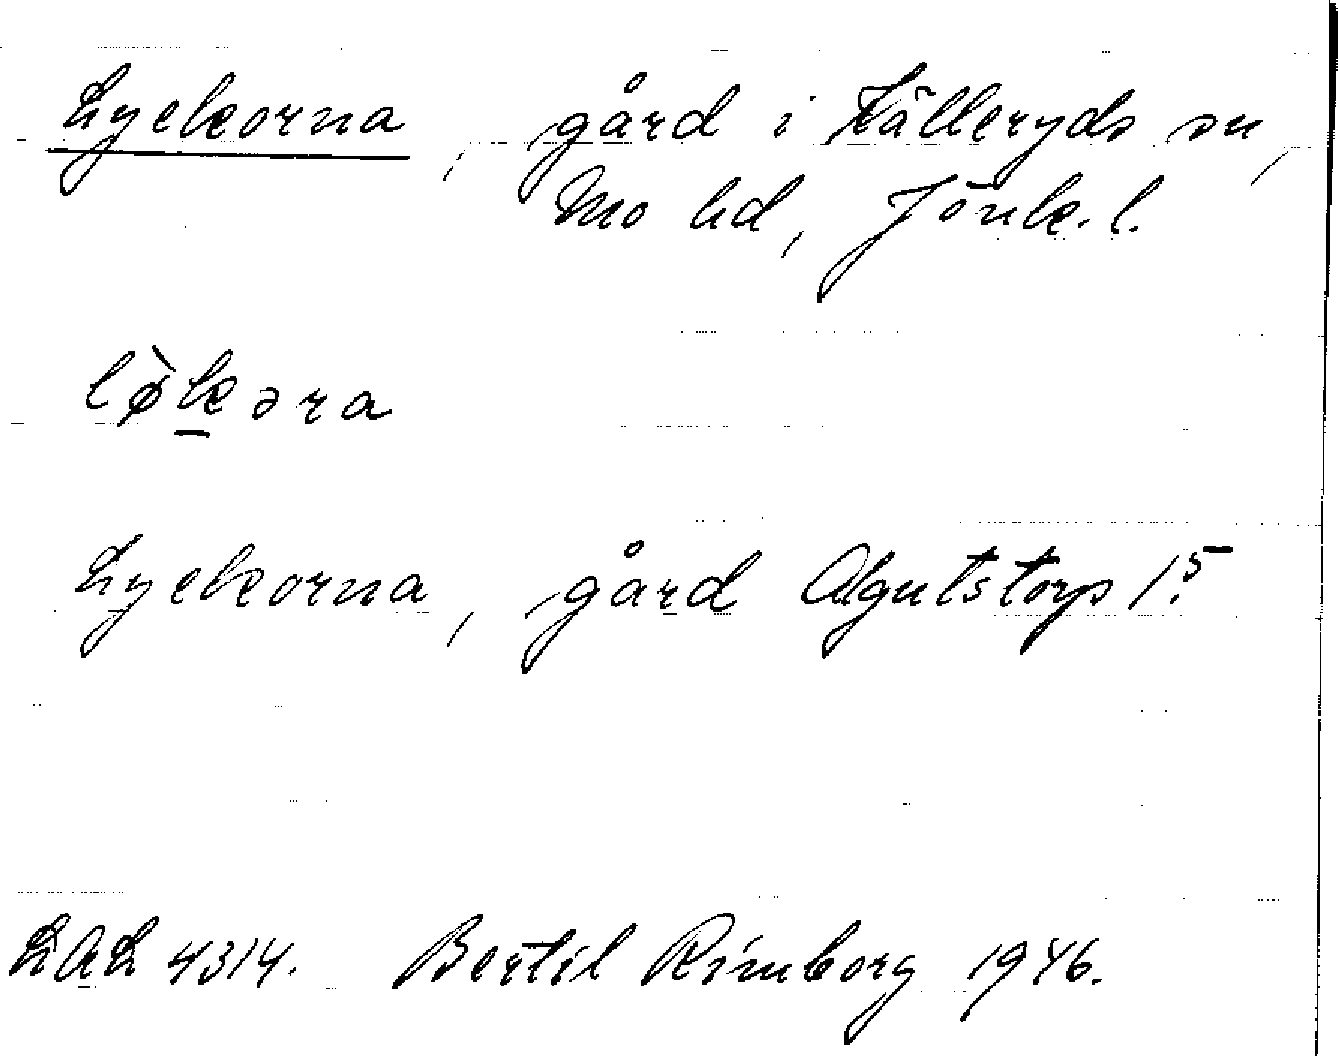 Lyckorna, gård i Källeryds sn,
Mo hd, Jönk. l.
lø̀kəra
Lyckorna, gård Algutstorp 1:5
LAL 4314. Bertil Rimborg 1946.